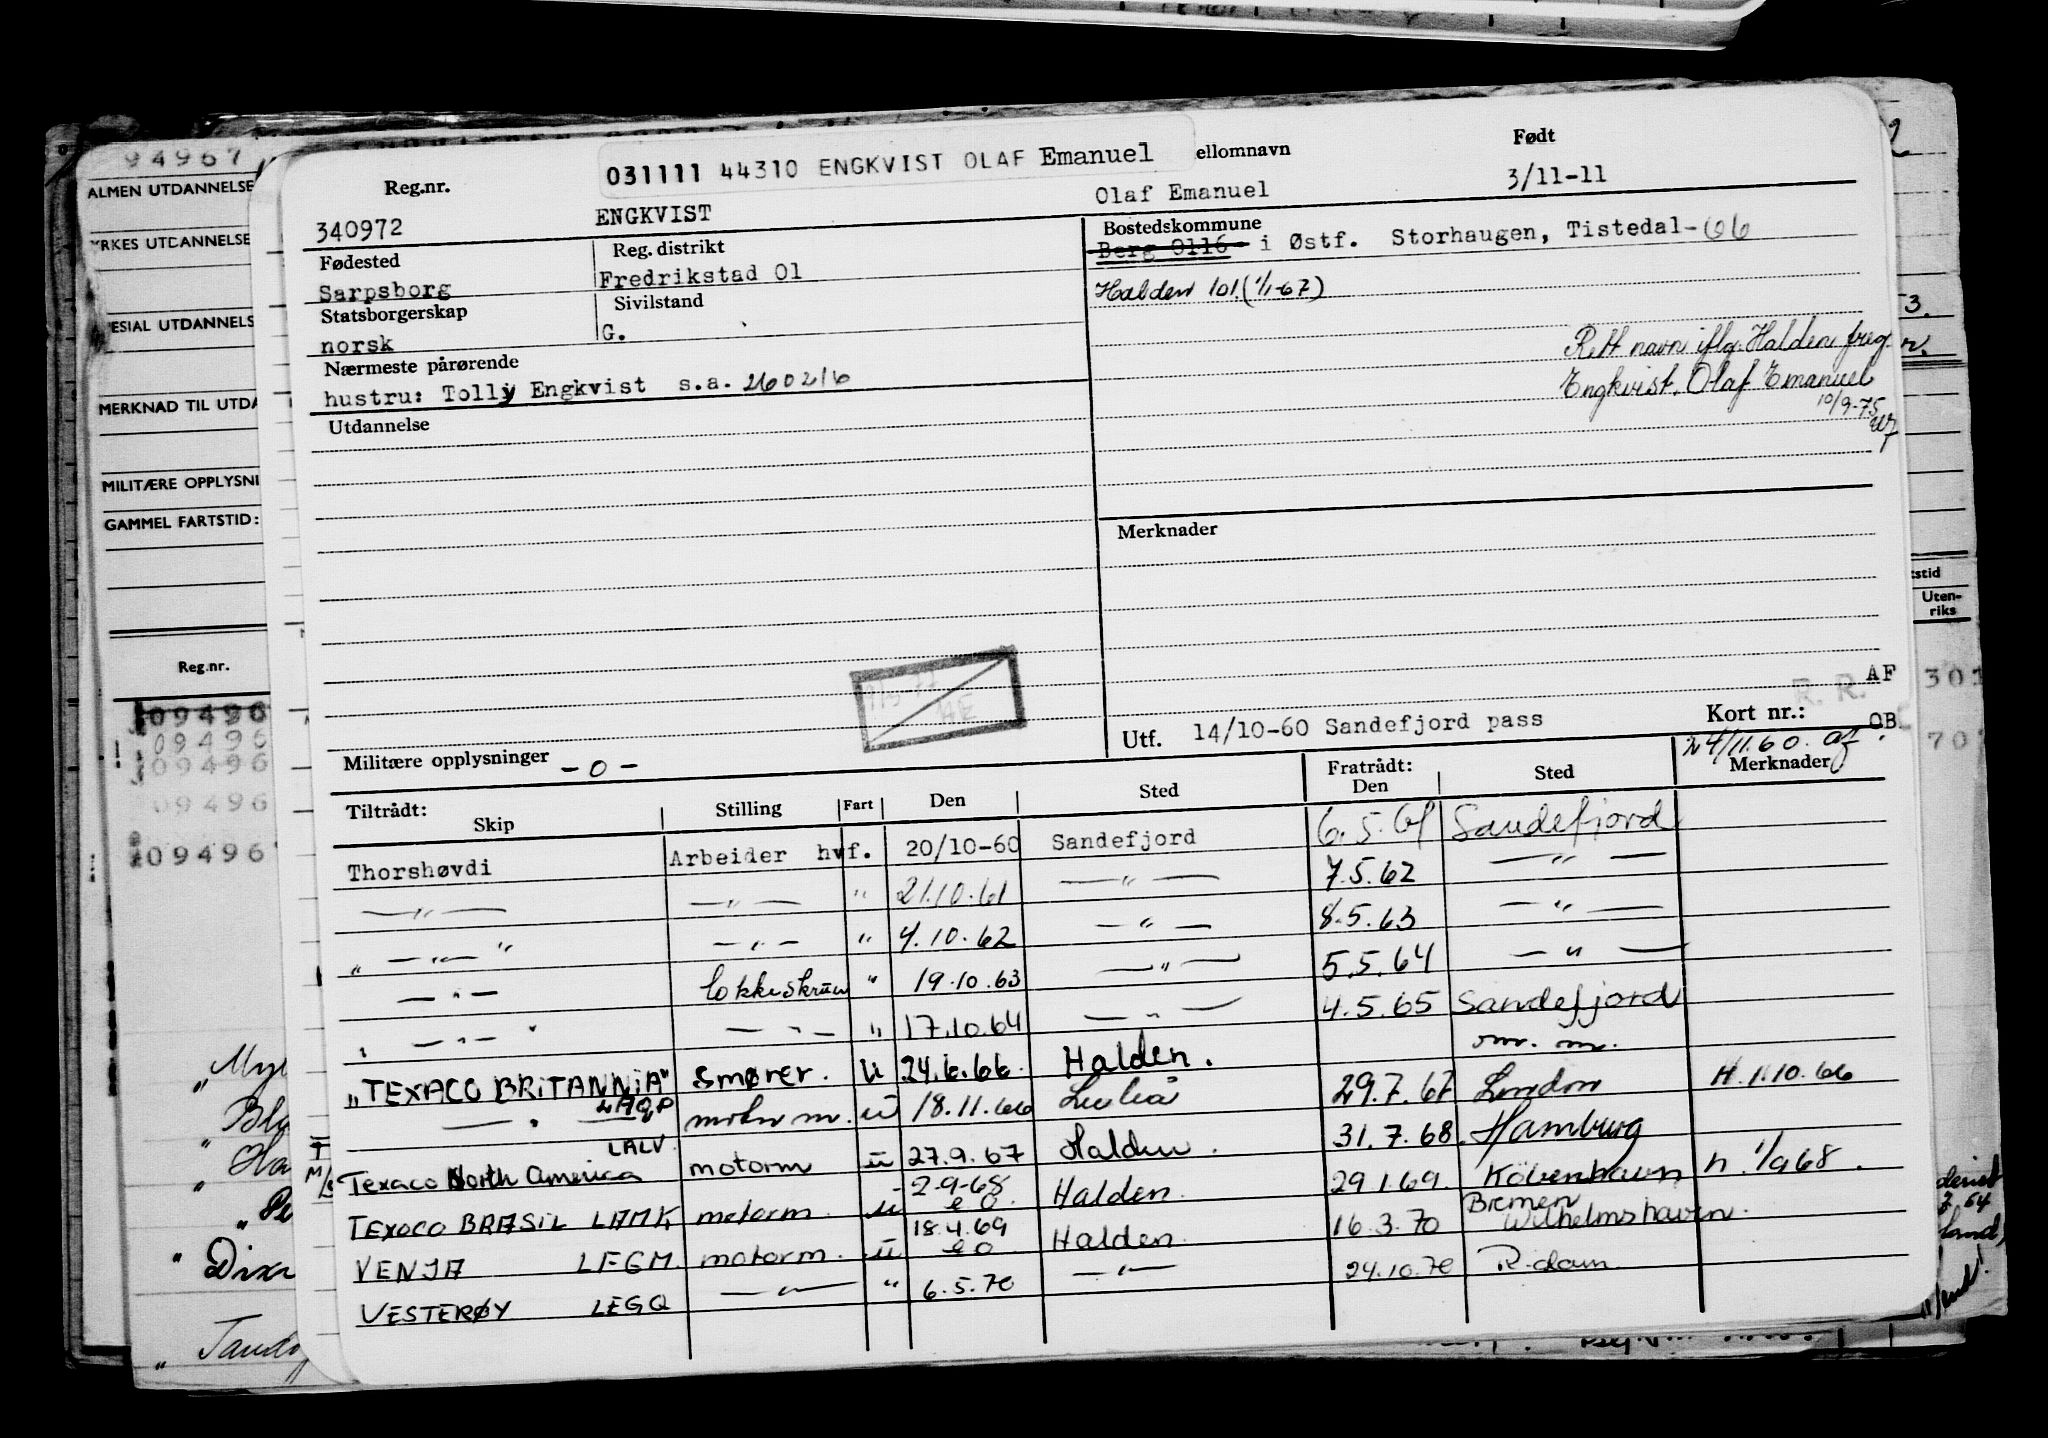 94967
ALMEN UTDANNELSE
YRKES UTDANNELSE
ESIAL UTDANNELS
MERKNAD TIL UTDA
MILITÆRE OPPLYSNI
GAMMEL FARTSTID:
Reg.nr.
09496
09496
09496
09496
09496
031111 44310 ENGKVIST OLAF Emanuel
ellomnavn
Født
Reg.nr.
340972
ENGKVIST
Olaf Emanuel
3/11-11
Fødested
Sarpsborg
Reg. distrikt
Fredrikstad 01
Bostedskommune
Berg 0116 i Østf. Storhaugen, Tistedal-
Halden 101 (1/1-67)
Statsborgerskap
norsk
Sivilstand
G.
Nærmeste pårørende
hustru: Tolly Engkvist s.a. 260216
Utdannelse
Rett navn iflg. Halden freg.
Engkvist, Olaf Emanuel
10/9-75
Merknader
AF
R. R.
Utf. 14/10-60 Sandefjord pass
Kort nr.:
OB.
24/11.60. af
Militære opplysninger -o-
Tiltrådt:
Skip Stilling Fart Den Sted Fratrådt: Den Sted Merknader
Thorshøvdi Arbeider hvf. 20/10-60 Sandefjord 6.5.61 Sandefjord
—"— —"— " 21.10.61 —"— 7.5.62 —"—
" —"— " —"— " 4.10.62 —"— 8.5.63 —"—
—"— " 19.10.63 —"— 5.5.64 —"—
" —"— " —"— " 17.10.64 —"— 4.5.65 Sandefjord
"TEXACO BRITANNIA" smører. u 24.6.66. Halden.
—"— LAQP u 18.11.66 29.7.67 London H. 1.10.66
Texaco North America LALV motorm u 27.9.67 Halden. 31.7.68. Hamburg
TEXACO BRASIL LAMK motorm. u 2-9-68 Halden. 29.1.69. København n. 1/9 68.
VENJA LFGM. motorm. u 18.4.69 Halden. 16.3.70 Bremen Wilhelmshaven.
VESTERØY LEGQ —"— " 6.5.70 —"— 24.10.70 R.dam.
tstid
Uten-
riks
301
70